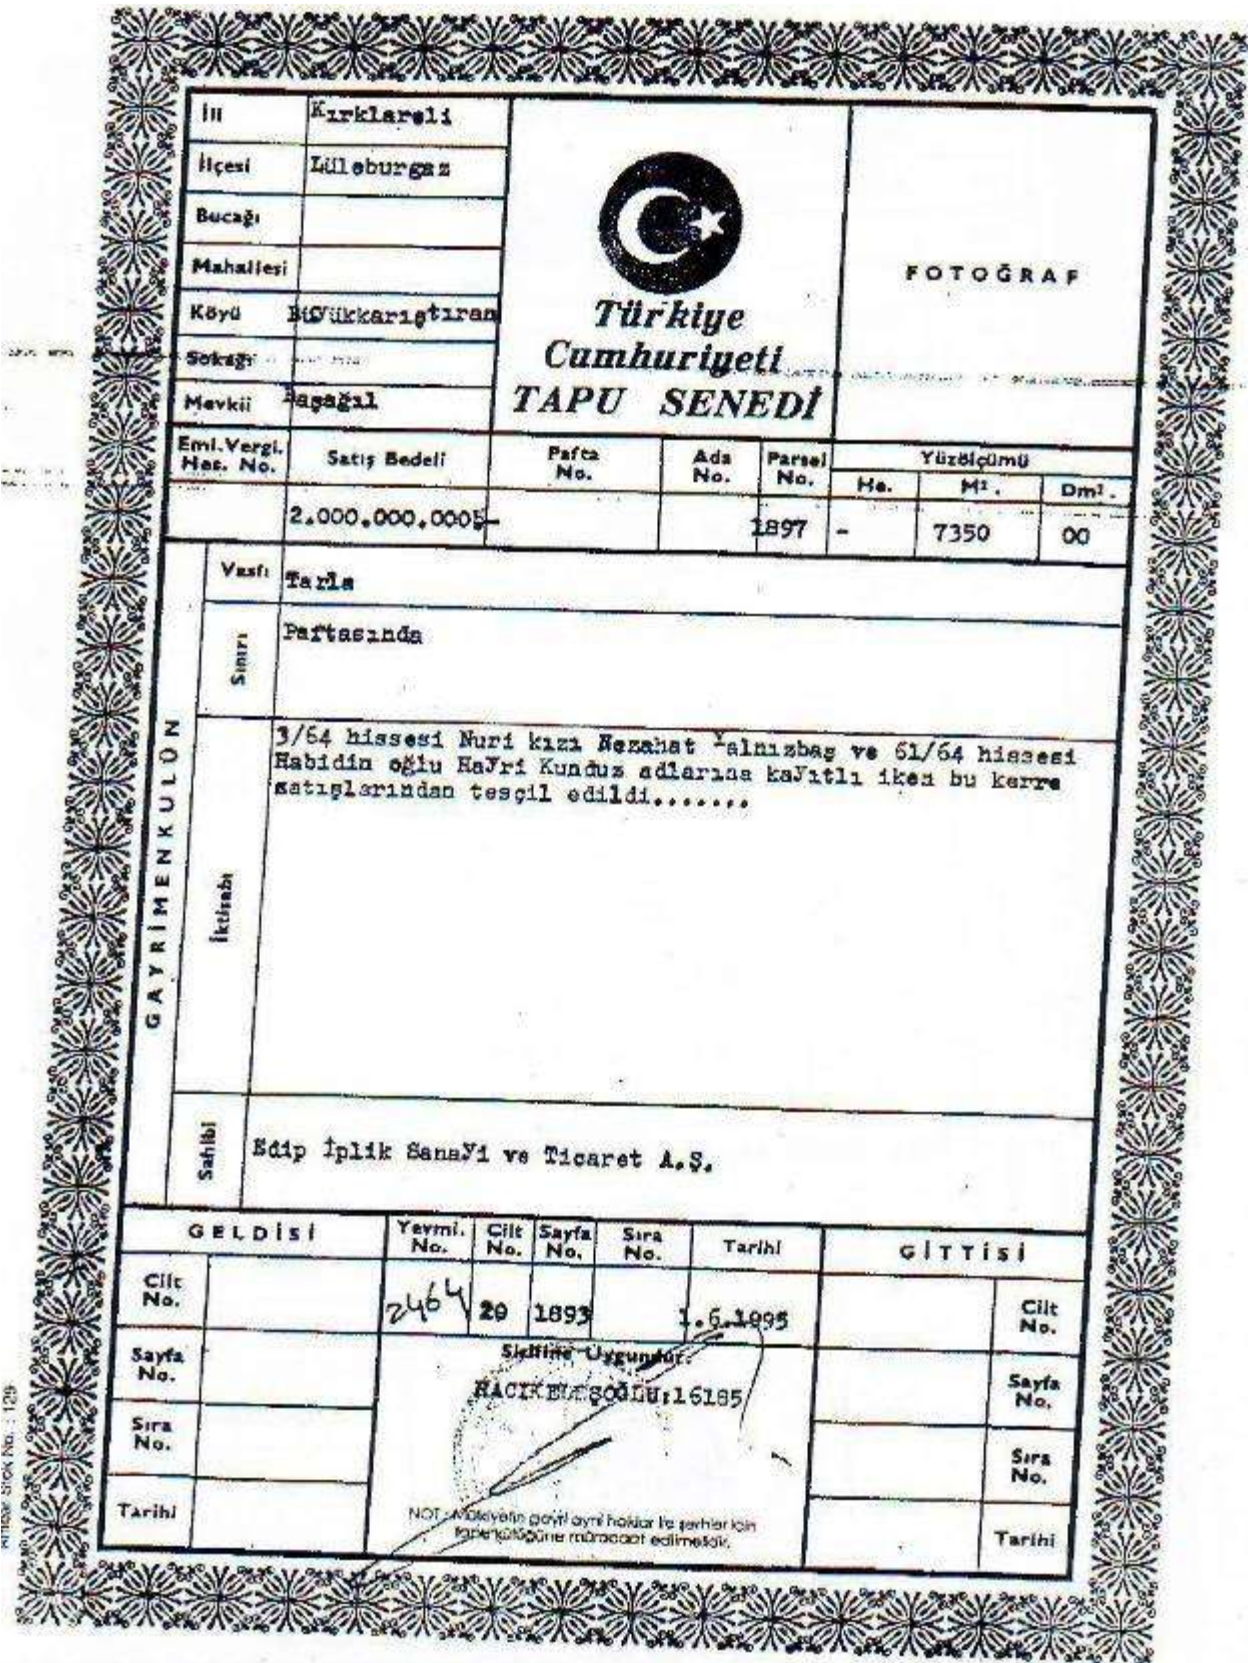 İli Kırklareli
İlçesi Lüleburgaz
Bucağı
Mahallesi
Köyü Büyükkarıştıran
Sokağı
Mevkii Paşağıl
Türkiye
Cumhuriyeti
TAPU SENEDİ
FOTOĞRAF
Eml.Vergi. Hes. No.
Satış Bedeli
Pafta No.
Ada No.
Parsel No.
Yüzölçümü
Ha. M². Dm².
2.000.000.000 1897 - 7350 00
GAYRİMENKULÜN
Vasfı Tarla
Sınırı Paftasında
İktisabı
3/64 hissesi Nuri kızı Nezahat Yalnızbaş ve 61/64 hissesi
Habidin oğlu Hayri Kunduz adlarına kayıtlı iken bu kerre
satışlarından tesçil edildi.......
Sahibi Edip İplik Sanayi ve Ticaret A.Ş.
GELDİSİ
Yevmi. No. Cilt No. Sayfa No. Sıra No. Tarihi
GİTTİSİ
Cilt No.
2464 20 1893 1.6.1995
Cilt No.
Sayfa No.
Siciline Uygundur.
Sayfa No.
HACIKELEŞOĞLU:16185
Sıra No.
Sıra No.
Tarihi
NOT : Mülkiyetin gayri ayni haklar ile şerhler için
tapu kütüğüne müracaat edilmelidir.
Tarihi
Stok No. : 129